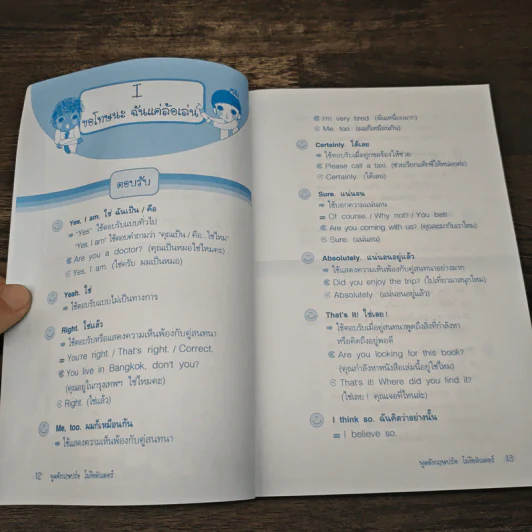 I
ขอโทษนะ ฉันแค่ล้อเล่น
ตอบรับ
Yes, I am. ใช่ ฉันเป็น / คือ
⇒ "Yes" ใช้ตอบรับแบบทั่วไป
"Yes, I am" ใช้ตอบคำถามว่า "คุณเป็น / คือ...ใช่ไหม"
Are you a doctor? (คุณเป็นหมอใช่ไหมคะ)
Yes, I am. (ใช่ครับ ผมเป็นหมอ)
Yeah. ใช่
⇒ ใช้ตอบรับแบบไม่เป็นทางการ
Right. ใช่แล้ว
⇒ ใช้ตอบรับหรือแสดงความเห็นพ้องกับคู่สนทนา
= You're right. / That's right. / Correct.
You live in Bangkok, don't you?
(คุณอยู่ในกรุงเทพฯ ใช่ไหมคะ)
Right. (ใช่แล้ว)
Me, too. ผมก็เหมือนกัน
⇒ ใช้แสดงความเห็นพ้องกับคู่สนทนา
12 พูดอังกฤษปร๋อ ไม่ง้อดินสอ
I'm very tired. (ฉันเหนื่อยมาก)
Me, too. (ผมก็เหมือนกัน)
Certainly. ได้เลย
⇒ ใช้ตอบรับเมื่อถูกขอร้องให้ช่วย
Please call a taxi. (ช่วยเรียกแท็กซี่ให้หน่อยค่ะ)
Certainly. (ได้เลย)
Sure. แน่นอน
⇒ ใช้บอกความแน่นอน
= Of course. / Why not? / You bet!
Are you coming with us? (คุณจะมากับเราไหม)
Sure. (แน่นอน)
Absolutely. แน่นอนอยู่แล้ว
⇒ ใช้แสดงความเห็นพ้องกับคู่สนทนาอย่างมาก
Did you enjoy the trip? (ไปเที่ยวมาสนุกไหม)
Absolutely. (แน่นอนอยู่แล้ว)
That's it! ใช่เลย !
⇒ ใช้ตอบรับเมื่อคู่สนทนาพูดถึงสิ่งที่กำลังหา
หรือคิดถึงอยู่พอดี
Are you looking for this book?
(คุณกำลังหาหนังสือเล่มนี้อยู่ใช่ไหม)
That's it! Where did you find it?
(ใช่เลย ! คุณเจอที่ไหนล่ะ)
I think so. ฉันคิดว่าอย่างนั้น
= I believe so.
13